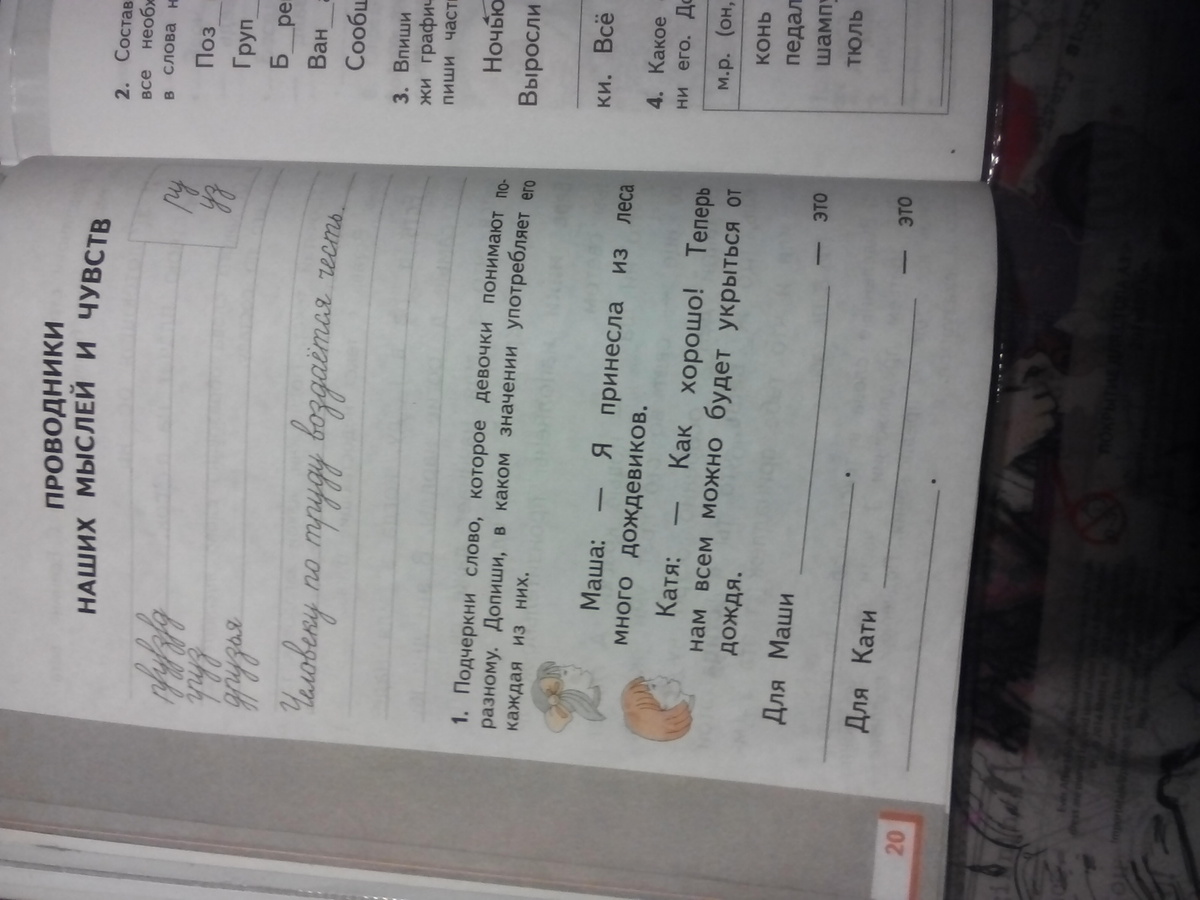 ПРОВОДНИКИ
НАШИХ МЫСЛЕЙ И ЧУВСТВ
ру
уз
груз
друзья
Человеку по труду воздаётся честь.
1. Подчеркни слово, которое девочки понимают по-
разному. Допиши, в каком значении употребляет его
каждая из них.
Маша: — Я принесла из леса
много дождевиков.
Катя: — Как хорошо! Теперь
нам всем можно будет укрыться от
дождя.
Для Маши ____ — это
____.
Для Кати ____ — это
____.
20
2. Состав
все необх
в слова н
Поз__
Груп__
Б__ре
Ван__
Сообщ
3. Впиши
жи графич
пиши част
Ночью
Выросли
ки. Всё
4. Какое
ни его. До
м.р. (он,
конь
педал
шампу
тюль